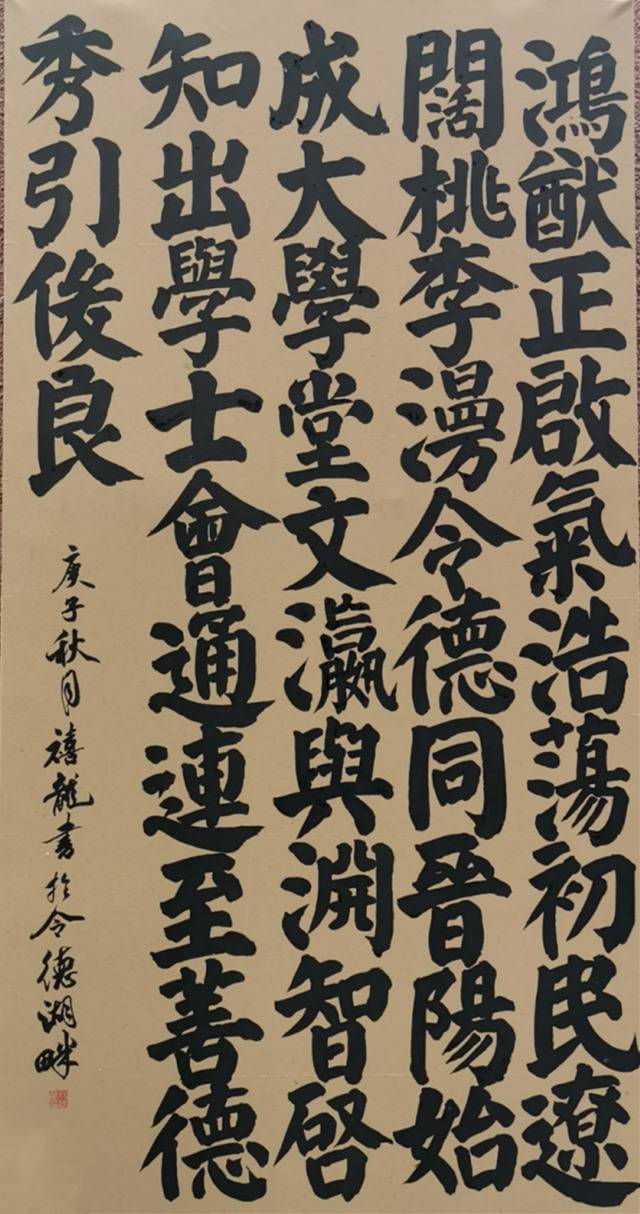 鴻猷正啟氣浩蕩初民遼
闊桃李漫令德同晉陽始
成大學堂文瀛與淵智啓
知出學士會通連至善德
秀引俊良
庚子秋月禧龍書於令德湖畔